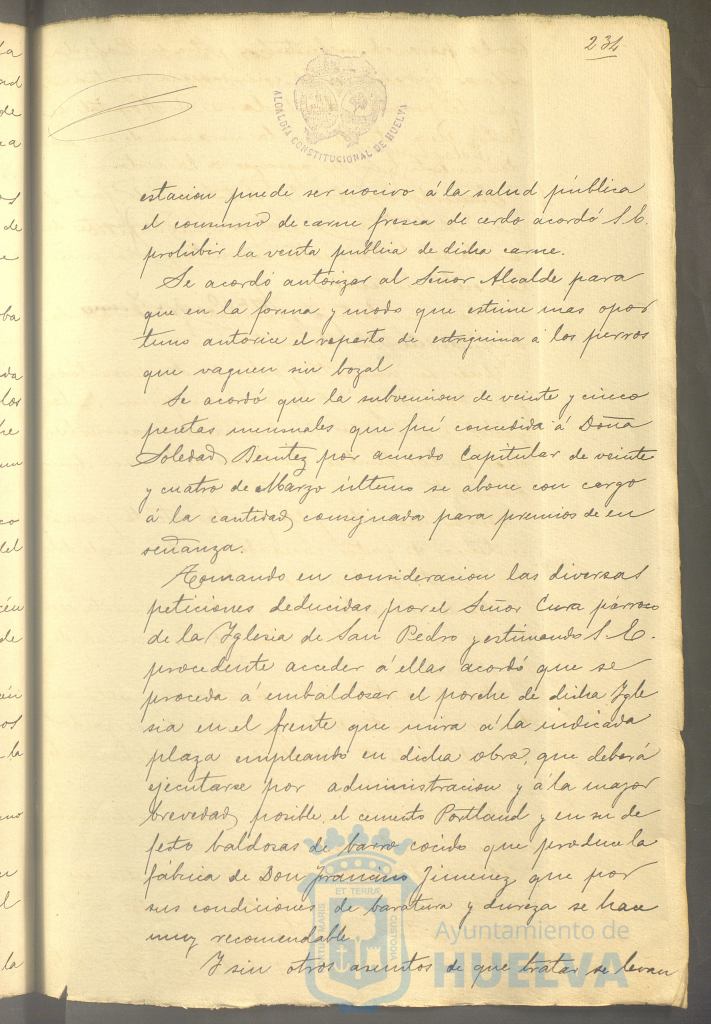 231
ALCALDÍA CONSTITUCIONAL DE HUELVA
estacion puede ser nocivo á la salud pública
el consumo de carne fresca de cerdo acordó S. E.
prohibir la venta publica de dicha carne.
Se acordó autorizar al Señor Alcalde para
que en la forma y modo que estime mas opor
tuno autorice el reparto de estrignina á los perros
que vaguen sin bozal
Se acordó que la subvencion de veinte y cinco
pesetas mensuales que fué concedida á Doña
Soledad Benitez por acuerdo Capitular de veinte
y cuatro de Marzo último se abone con cargo
á la cantidad consignada para premios de en
señanza.
Tomando en consideracion las diversas
peticiones deducidas por el Señor Cura párroco
de la Yglesia de San Pedro y estimando S. E.
procedente acceder á ellas acordó que se
proceda á embaldosar el porche de dicha Ygle
sia en el frente que mira á la indicada
plaza empleando en dicha obra, que deberá
ejecutarse por administracion y á la mayor
brevedad posible, el cemento Portland y en su de
fecto baldosas de barro cocido que produce la
fábrica de Don Francisco Jimenez que por
sus condiciones de baratura y dureza se hace
muy recomendable
Y sin otros asuntos de que tratar se levan
Ayuntamiento de
HUELVA